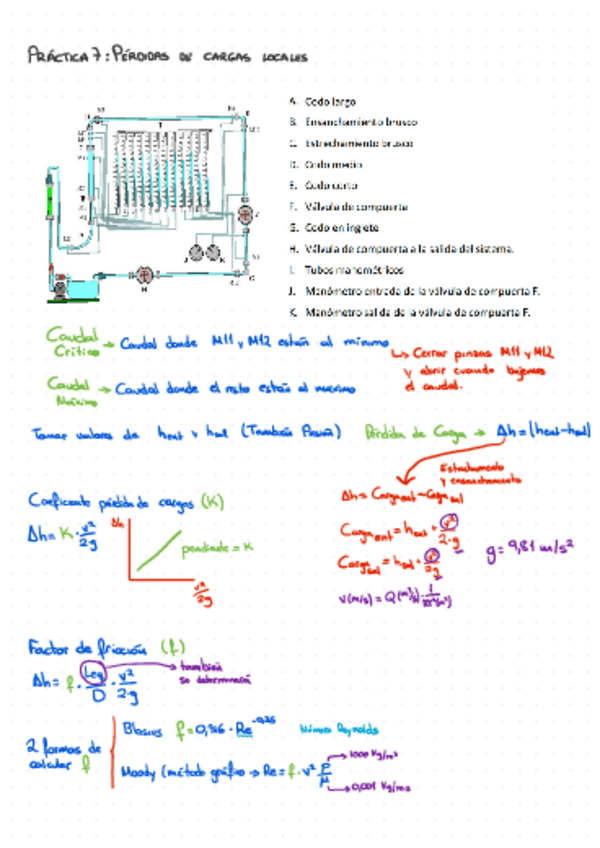 PRÁCTICA 7: PÉRDIDAS DE CARGAS LOCALES
A. Codo largo
B. Ensanchamiento brusco
C. Estrechamiento brusco
D. Codo medio
E. Codo corto
F. Válvula de compuerta
G. Codo en inglete
H. Válvula de compuerta a la salida del sistema.
I. Tubos manométricos
J. Manómetro entrada de la válvula de compuerta F.
K. Manómetro salida de la válvula de compuerta F.
Caudal Crítico → Caudal donde M11 y M12 están al mínimo
↳ Cerrar pinzas M11 y M12
y abrir cuando bajemos
el caudal.
Caudal Máximo → Caudal donde el resto están al máximo
Tomar valores de hent y hsal (También Presión) Pérdida de Carga → Δh = (hent-hsal)
Estrechamiento
y ensanchamiento
Δh = Cargaent - Cargasal
Coeficiente pérdida de cargas (K)
Δh = K · v²/2g
Δh
pendiente = K
v²/2g
Cargaent = hent + v²/2·g
Cargasal = hsal + v²/2·g
g = 9,81 m/s²
Factor de fricción (f)
Δh = f · Leq/D · v²/2·g
→ también
se determinará
2 formas de
calcular f
Blasius f = 0,316 · Re^-0,25
Número Reynolds
Moody (método gráfico → Re = f · v² ρ/μ
→ 1000 Kg/m³
→ 0,001 Kg/m·s